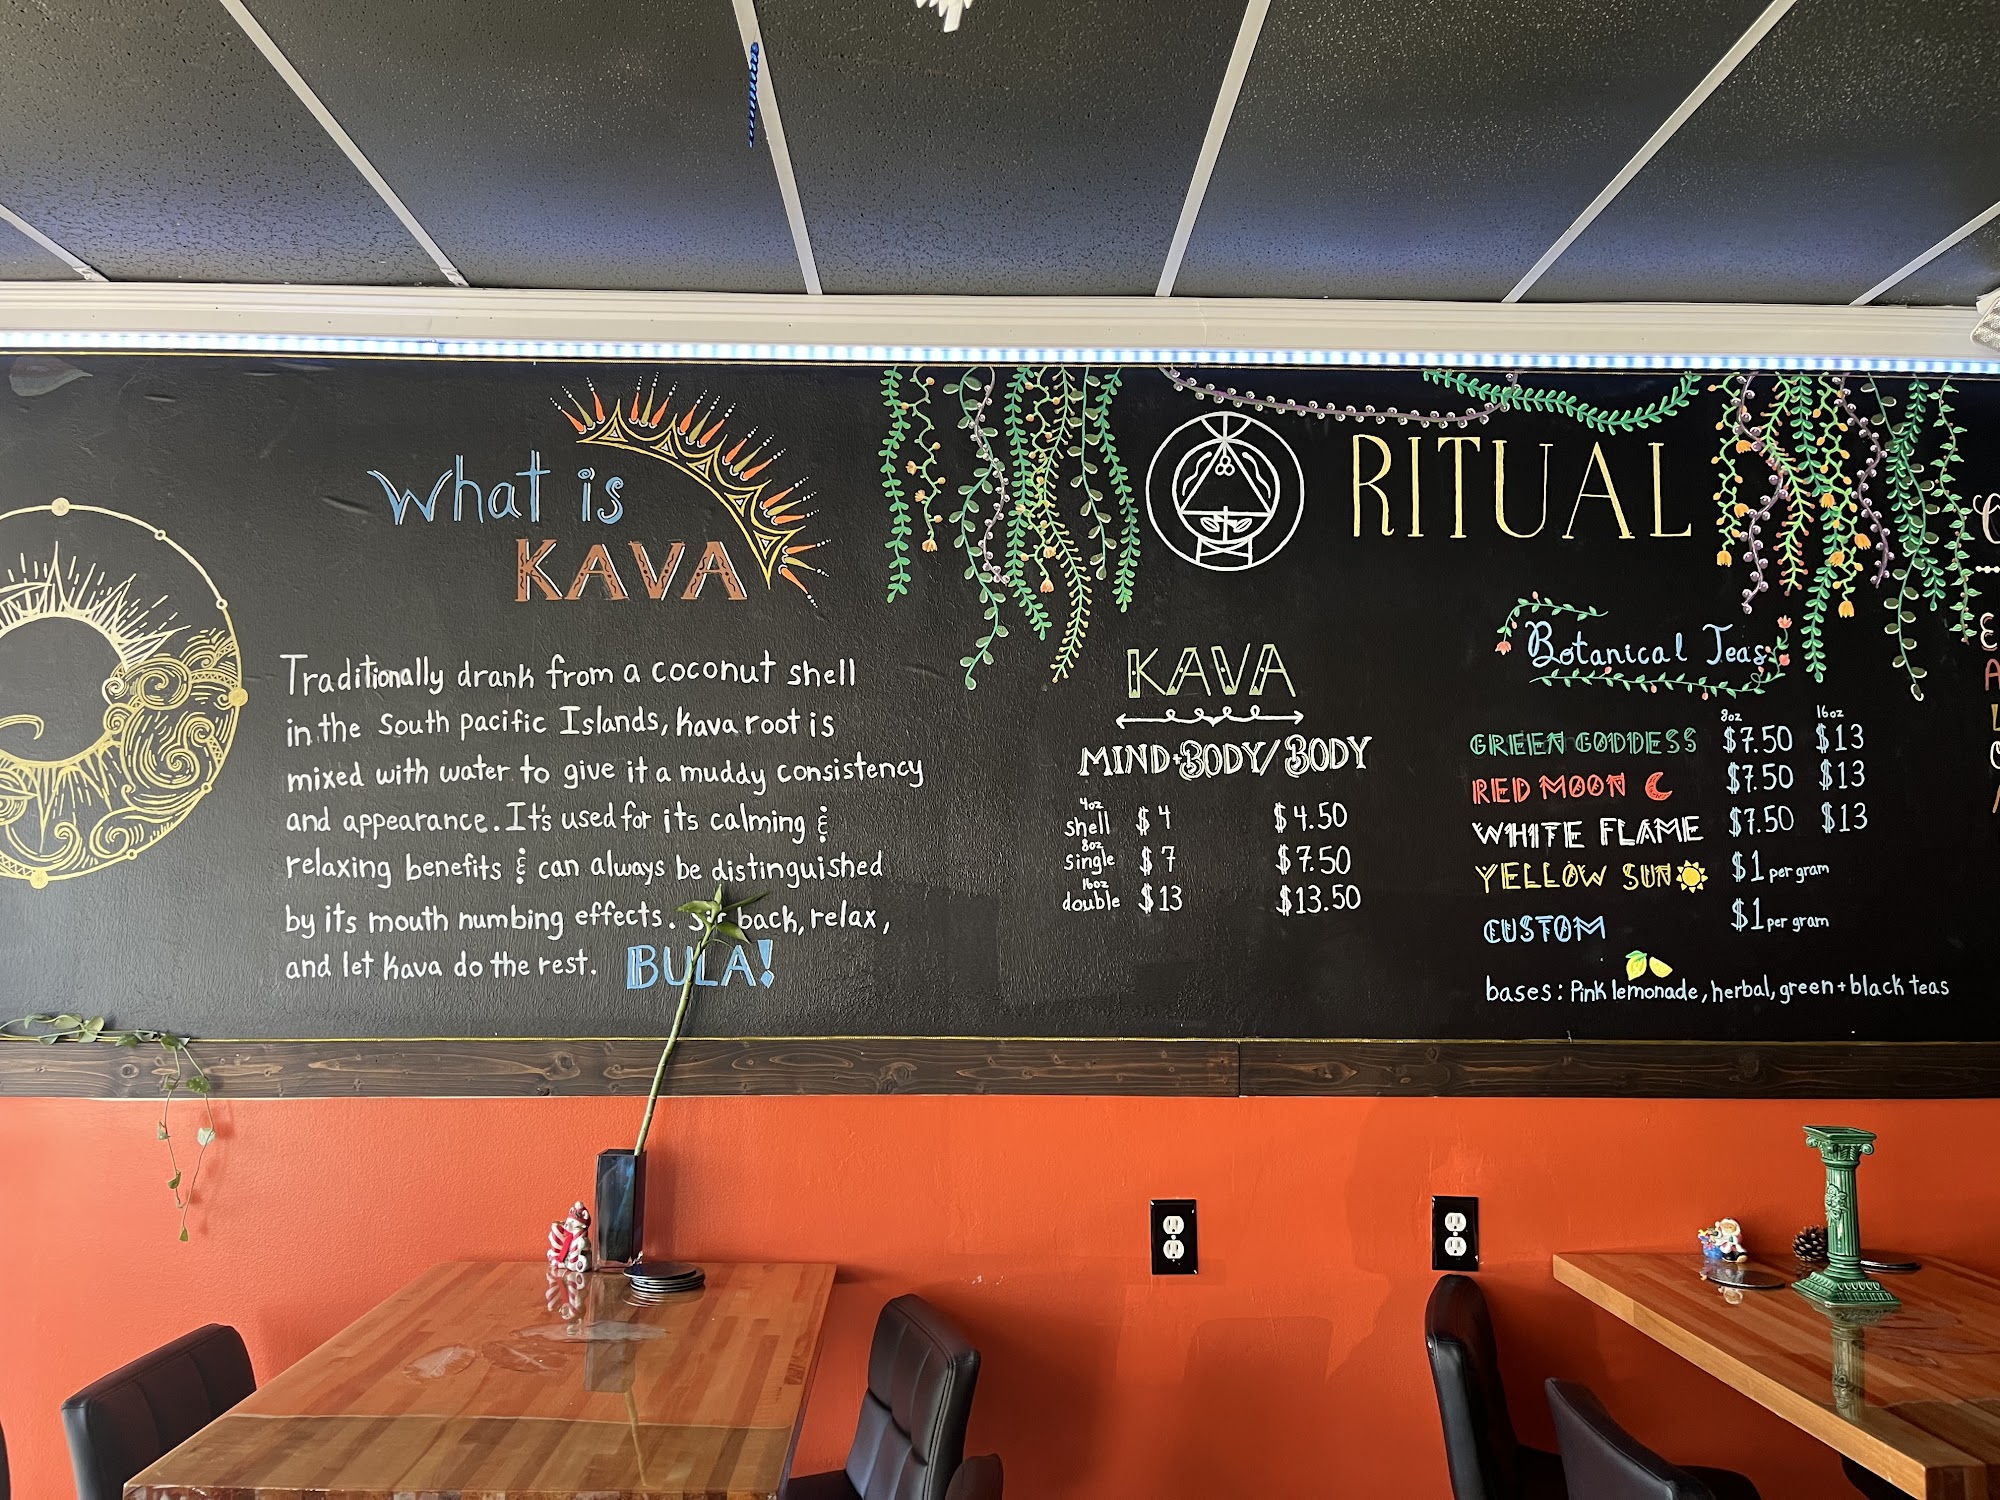 What is
KAVA
Traditionally drank from a coconut shell
in the South pacific Islands, kava root is
mixed with water to give it a muddy consistency
and appearance. It's used for its calming &
relaxing benefits & can always be distinguished
by its mouth numbing effects. Sit back, relax,
and let kava do the rest. BULA!
RITUAL
KAVA
MIND+BODY/BODY
4oz
shell $4 $4.50
8oz
single $7 $7.50
16oz
double $13 $13.50
Botanical Teas
8oz 16oz
GREEN GODDESS $7.50 $13
RED MOON $7.50 $13
WHITE FLAME $7.50 $13
YELLOW SUN $1 per gram
CUSTOM $1 per gram
bases: Pink lemonade, herbal, green + black teas